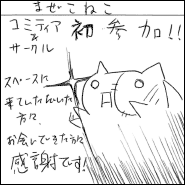 まぜこねこ
コミティア
&
サークル
初参加!!
スペースに
来ていただいた
方々、
お会いできた方に
感謝です!